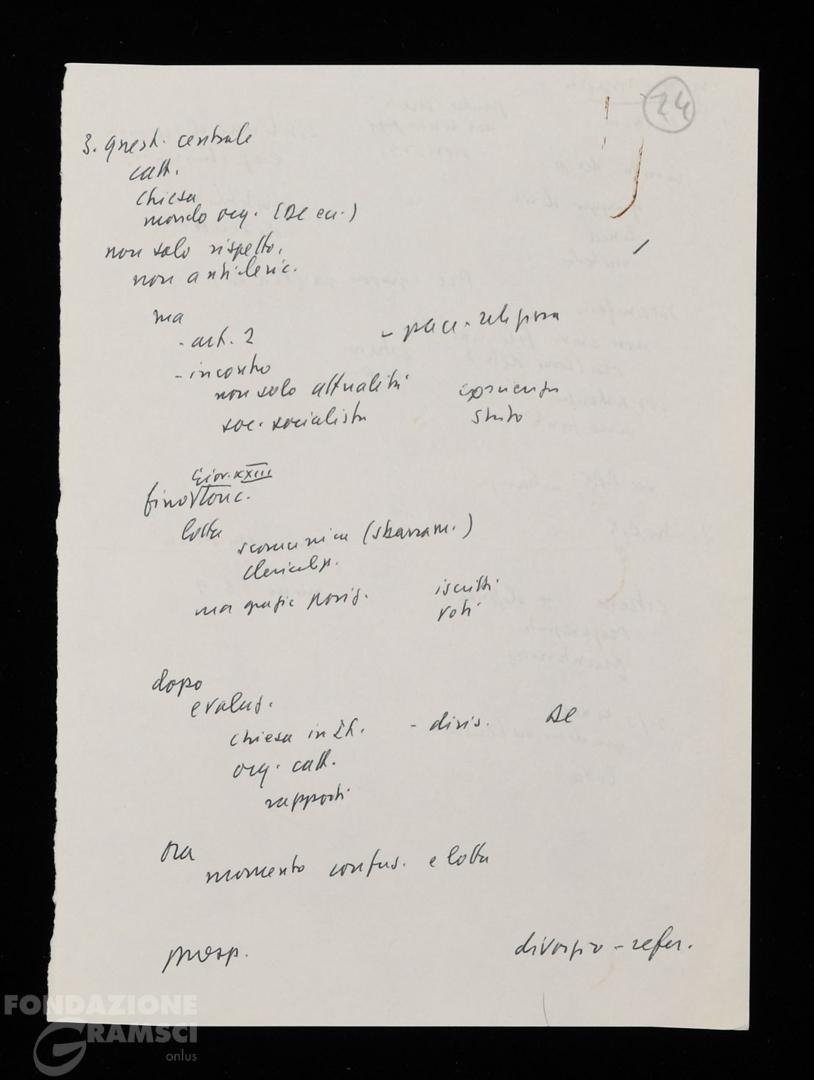 24
3. quest. centrale
catt.
chiesa
mondo org. (DC ecc.)
non solo rispetto,
non anticleric.
ma
- art. 2 - pace religiosa
- incontro
non solo attualità
soc. socialista Stato
Giov. XXIII
fino V Conc.
lotta
scomunica (sbarram.)
clerical.
ma già posiz. iscritti
voti
dopo
evoluz.
chiesa in It. - divis. DC
org. catt.
rapporti
ora
momento confus. e lotta
prosp. divorzio - refer.
FONDAZIONE
GRAMSCI
onlus